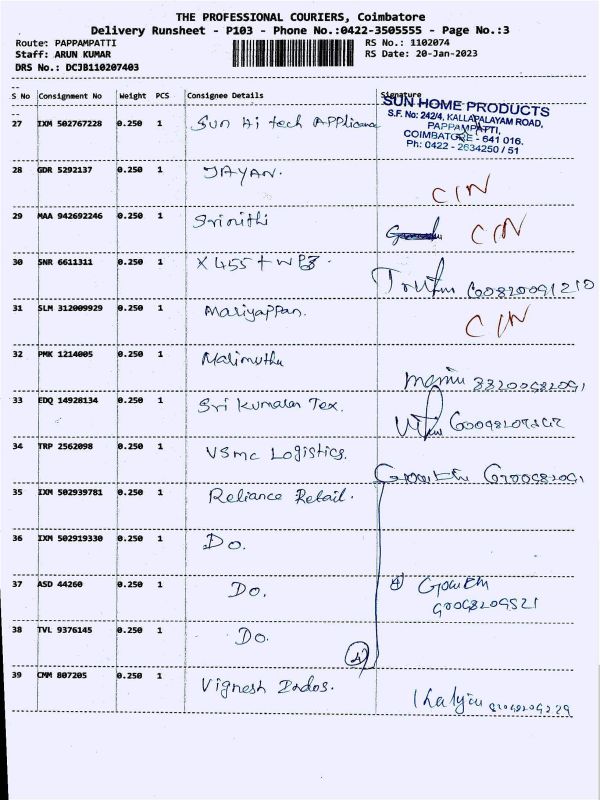 THE PROFESSIONAL COURIERS, Coimbatore
Delivery Runsheet - P103 - Phone No.:0422-3505555 - Page No.:3
Route: PAPPAMPATTI RS No.: 1102074
Staff: ARUN KUMAR RS Date: 20-Jan-2023
DRS No.: DCJB110207403
S No Consignment No Weight PCS Consignee Details Signature
SUN HOME PRODUCTS
S.F. No: 242/4, KALLAPALAYAM ROAD,
PAPPAMPATTI,
COIMBATORE - 641 016.
Ph: 0422 - 2634250 / 51
27 IXM 502767228 0.250 1 Sun Hi tech Appliance
28 GDR 5292137 0.250 1 JAYAN. CIN
29 MAA 942692246 0.250 1 Srinithi CIN
30 SNR 6611311 0.250 1 X 455 + WPJ.
31 SLM 312009929 0.250 1 Mariyappan. CIN
32 PMK 1214005 0.250 1 Malimuthu
33 EDQ 14928134 0.250 1 Sri Kumaran Tex.
34 TRP 2562098 0.250 1 VSMC Logistics.
35 IXM 502939781 0.250 1 Reliance Retail.
36 IXM 502919330 0.250 1 Do.
37 ASD 44260 0.250 1 Do. 4
38 TVL 9376145 0.250 1 Do. 4
39 CMM 807205 0.250 1 Vignesh Indos.